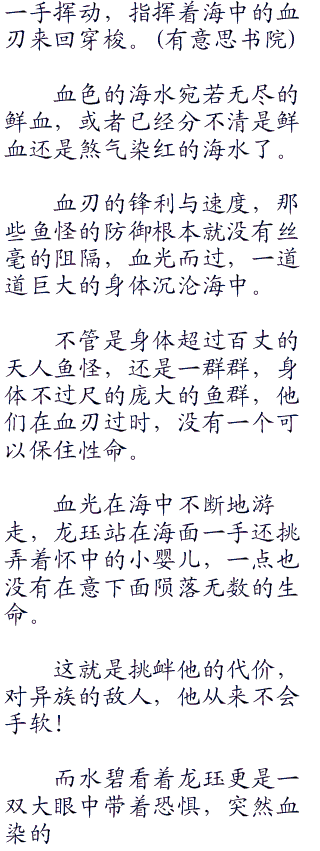 一手挥动，指挥着海中的血
刃来回穿梭。(有意思书院)
血色的海水宛若无尽的
鲜血，或者已经分不清是鲜
血还是煞气染红的海水了。
血刃的锋利与速度，那
些鱼怪的防御根本就没有丝
毫的阻隔，血光而过，一道
道巨大的身体沉沦海中。
不管是身体超过百丈的
天人鱼怪，还是一群群，身
体不过尺的庞大的鱼群，他
们在血刃过时，没有一个可
以保住性命。
血光在海中不断地游
走，龙珏站在海面一手还挑
弄着怀中的小婴儿，一点也
没有在意下面陨落无数的生
命。
这就是挑衅他的代价，
对异族的敌人，他从来不会
手软！
而水碧看着龙珏更是一
双大眼中带着恐惧，突然血
染的